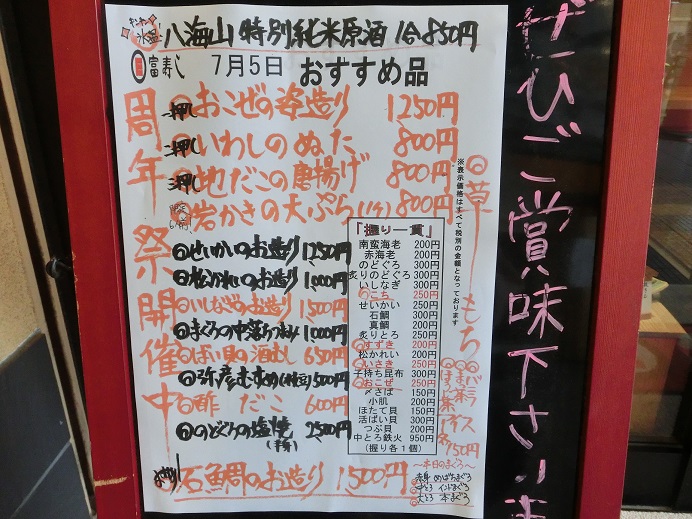 八海山 特別純米原酒 1合 850円
富寿し 7月5日 おすすめ品
周年祭開催中
一押し おこぜの姿造り 1250円
二押し いわしのぬた 800円
三押し 地だこの唐揚げ 800円
岩かきの天ぷら(1ケ) 800円
せいかいのお造り 1250円
松かれいのお造り 1000円
いしなぎのお造り 1500円
まぐろの中落ち 1000円
ばい貝の酒むし 650円
弥彦むすめ(枝豆) 500円
酢だこ 600円
のどぐろの塩焼 2500円
石鯛のお造り 1500円
「握り一貫」
南蛮海老 200円
赤海老 200円
のどぐろ 300円
炙りのどぐろ 300円
いしなぎ 300円
こち 250円
せいかい 250円
石鯛 300円
真鯛 200円
炙りとろ 250円
すずき 200円
松かれい 200円
いさき 250円
子持ち昆布 300円
おこぜ 250円
〆さば 150円
小肌 200円
ほたて貝 150円
活ばい貝 300円
つぶ貝 200円
中とろ鉄火 950円
(握り各1個)
※表示価格はすべて税別の金額となっております
草もち
バニラアイス
抹茶
ほうじ茶
各150円
～本日のまぐろ～
赤身 めばちまぐろ
中とろ インドまぐろ
大とろ 本まぐろ
ぜひご賞味下さいま